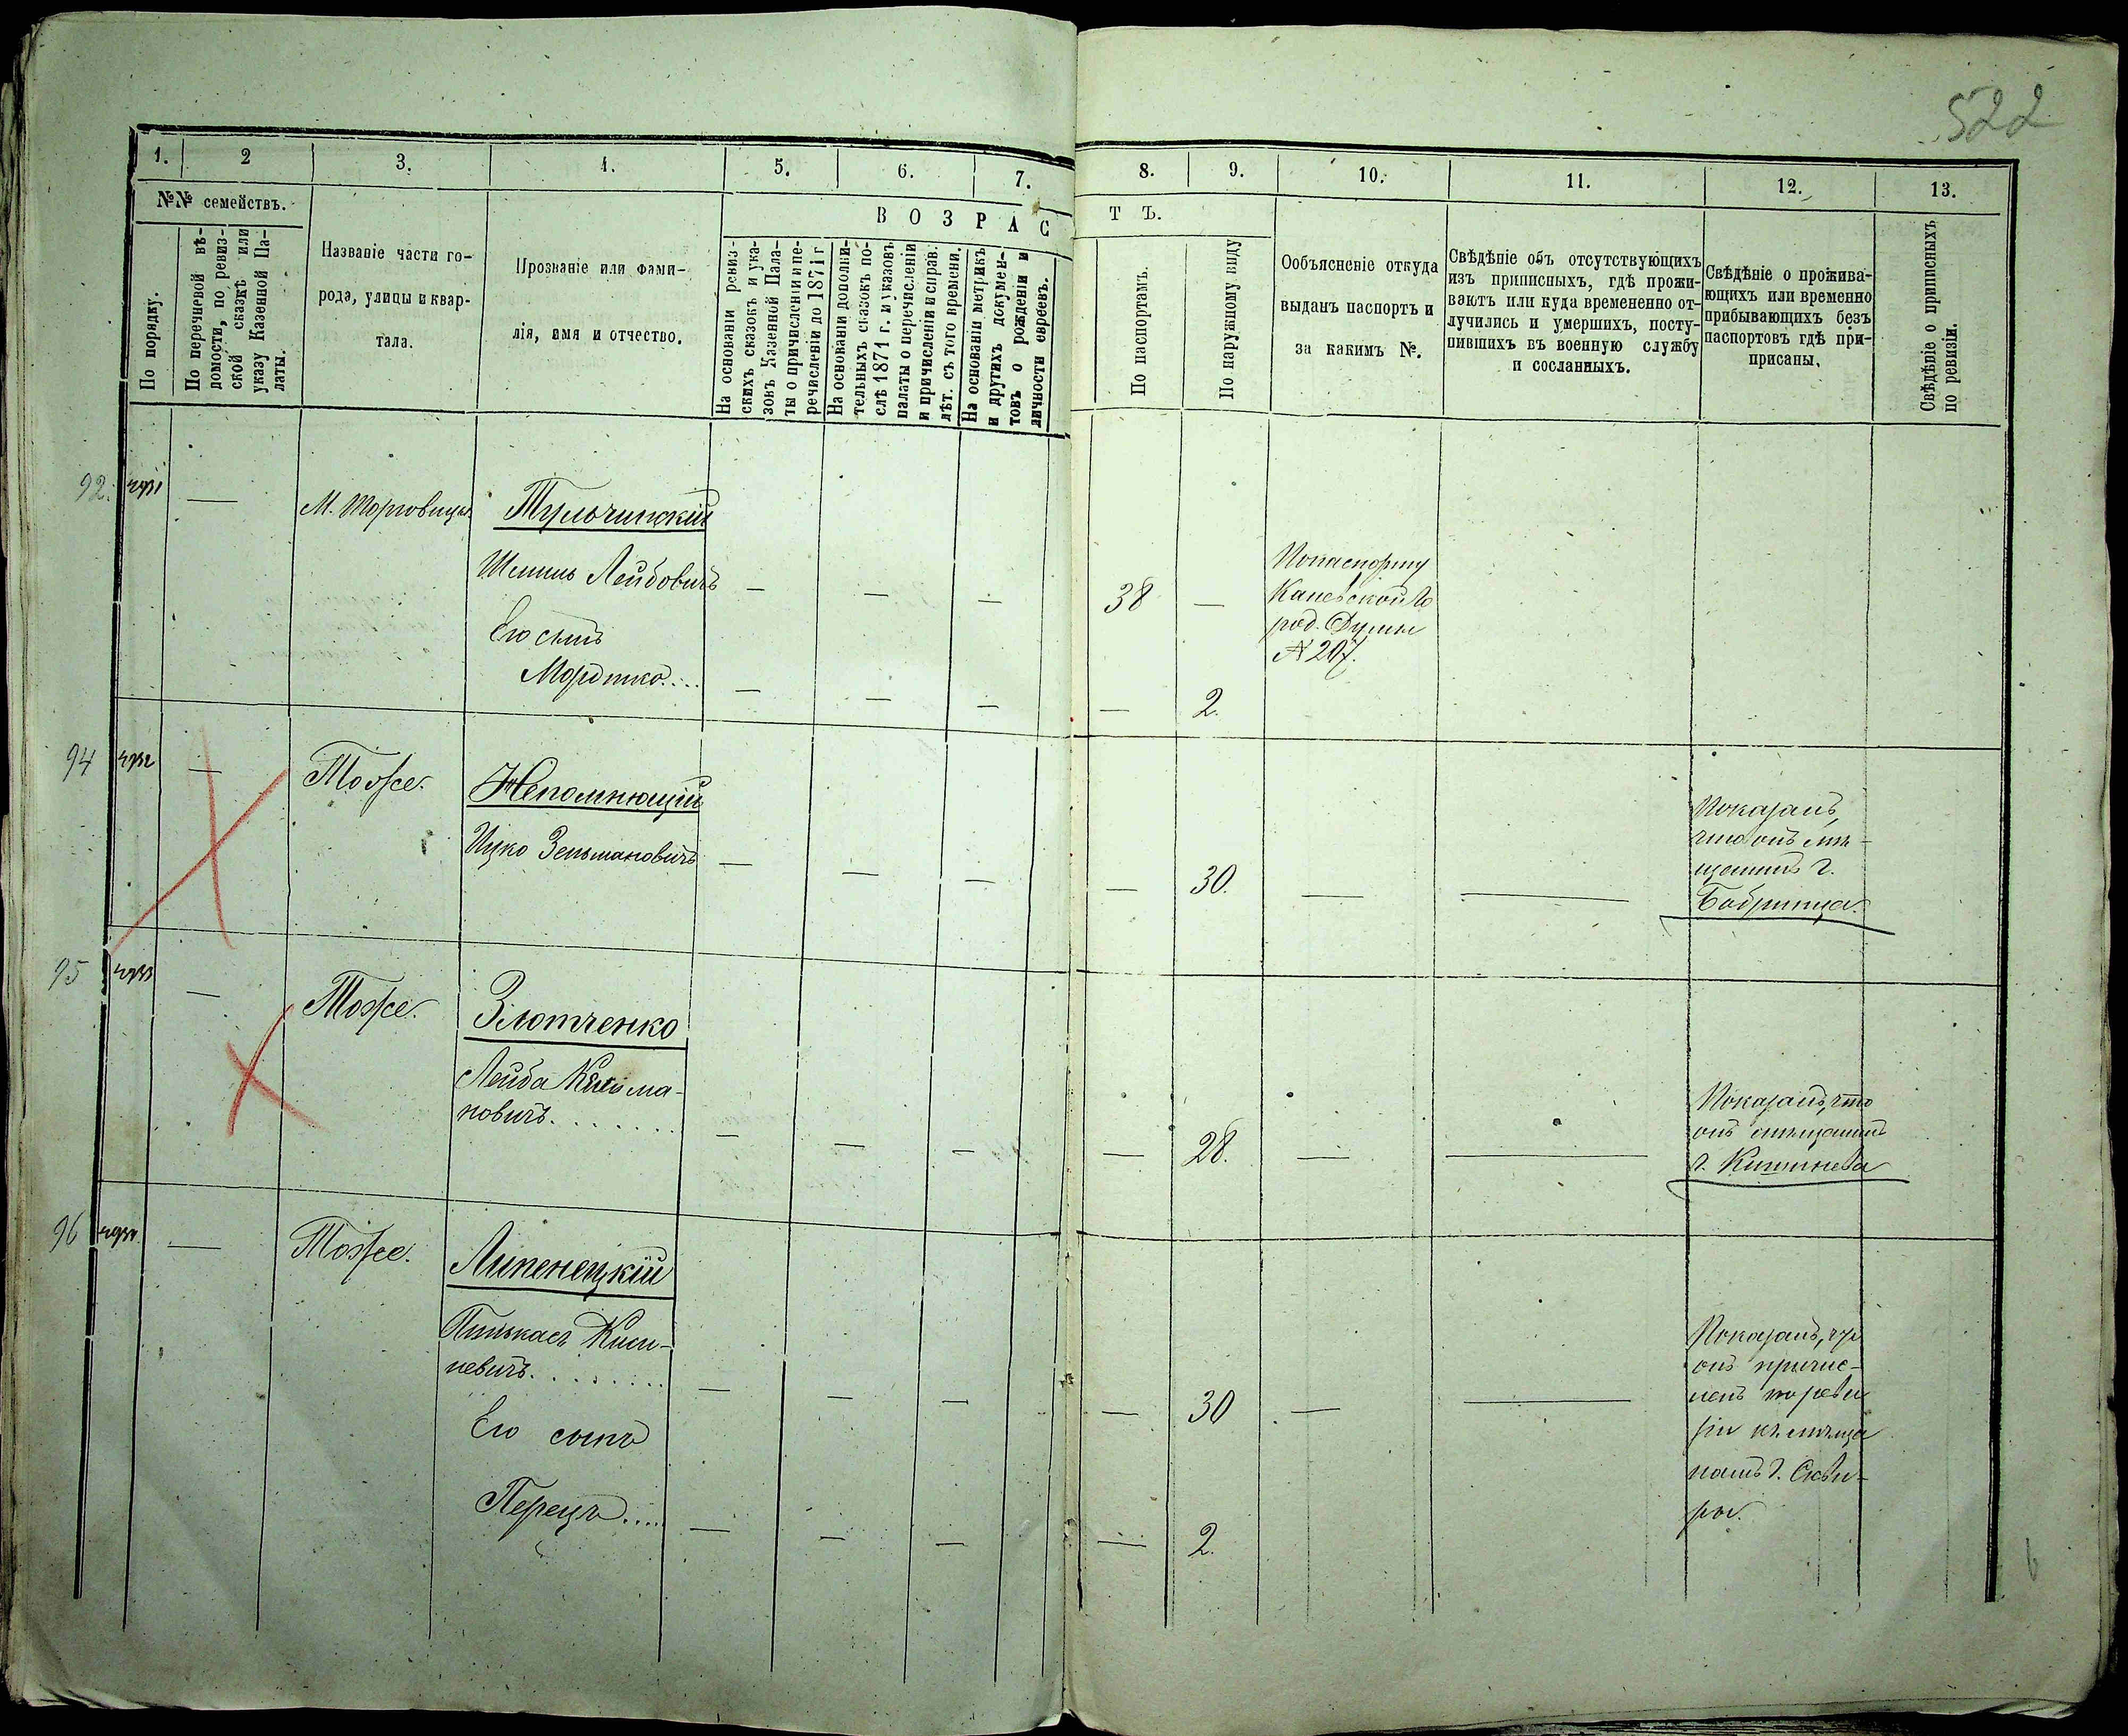 522
1. 2 3. 4. 5. 6. 7. 8. 9. 10. 11. 12. 13.
№№ семействъ.
По порядку.
По перечневой вѣ-
домости, по ревиз-
ской сказкѣ или
указу Казенной Па-
латы.
Названіе части го-
рода, улицы и квар-
тала.
Прозваніе или фами-
лія, имя и отчество.
ВОЗРАС
ТЪ.
На основаніи ревиз-
скихъ сказокъ и ука-
зокъ Казенной Пала-
ты о причисленіи и пе-
речисленіи до 1871 г
На основаніи дополни-
тельныхъ сказокъ по-
слѣ 1871 г. и указовъ
палаты о перечисленіи
и причисленіи и справ.
лѣт. съ того времени.
На основаніи метрикъ
и другихъ докумен-
товъ о рожденіи и
личности евреевъ.
По паспортамъ.
По наружному виду
Ообъясненіе откуда
выданъ паспортъ и
за какимъ №.
Свѣдѣніе объ отсутствующихъ
изъ приписныхъ, гдѣ прожи-
ваютъ или куда временено от-
лучились и умершихъ, посту-
пившихъ въ военную службу
и сосланныхъ.
Свѣдѣніе о прожива-
ющихъ или временно
прибывающихъ безъ
паспортовъ гдѣ при-
присаны.
Свѣдѣніе о приписныхъ
по ревизіи.
92. — М. Торговица. Тульчинскій
Шмиль Лейбовичъ — — — 38 —
Его сынъ
Мордко.... — — — — 2.
Попаспорту
Каневской Го
род. Думы
№ 207.
94 — Тоже. Непомнющій
Ицко Зельмановичъ — — — — 30. — —
Показалъ,
что онъ мѣ-
щанинъ г.
Бобринца.
95 — Тоже. Злотченко
Лейба Кельма-
новичъ....... — — — — 28. — —
Показалъ, что
онъ мѣщанинъ
г. Кишинева
96 — Тоже. Липенецкій
Пинькасъ
невичъ........ — — — — 30 — —
Его сынъ
Перецъ.... — — — — 2.
Показалъ, что
онъ причис-
ленъ по реви
зіи къ мѣща
намъ г. Скви-
ры.